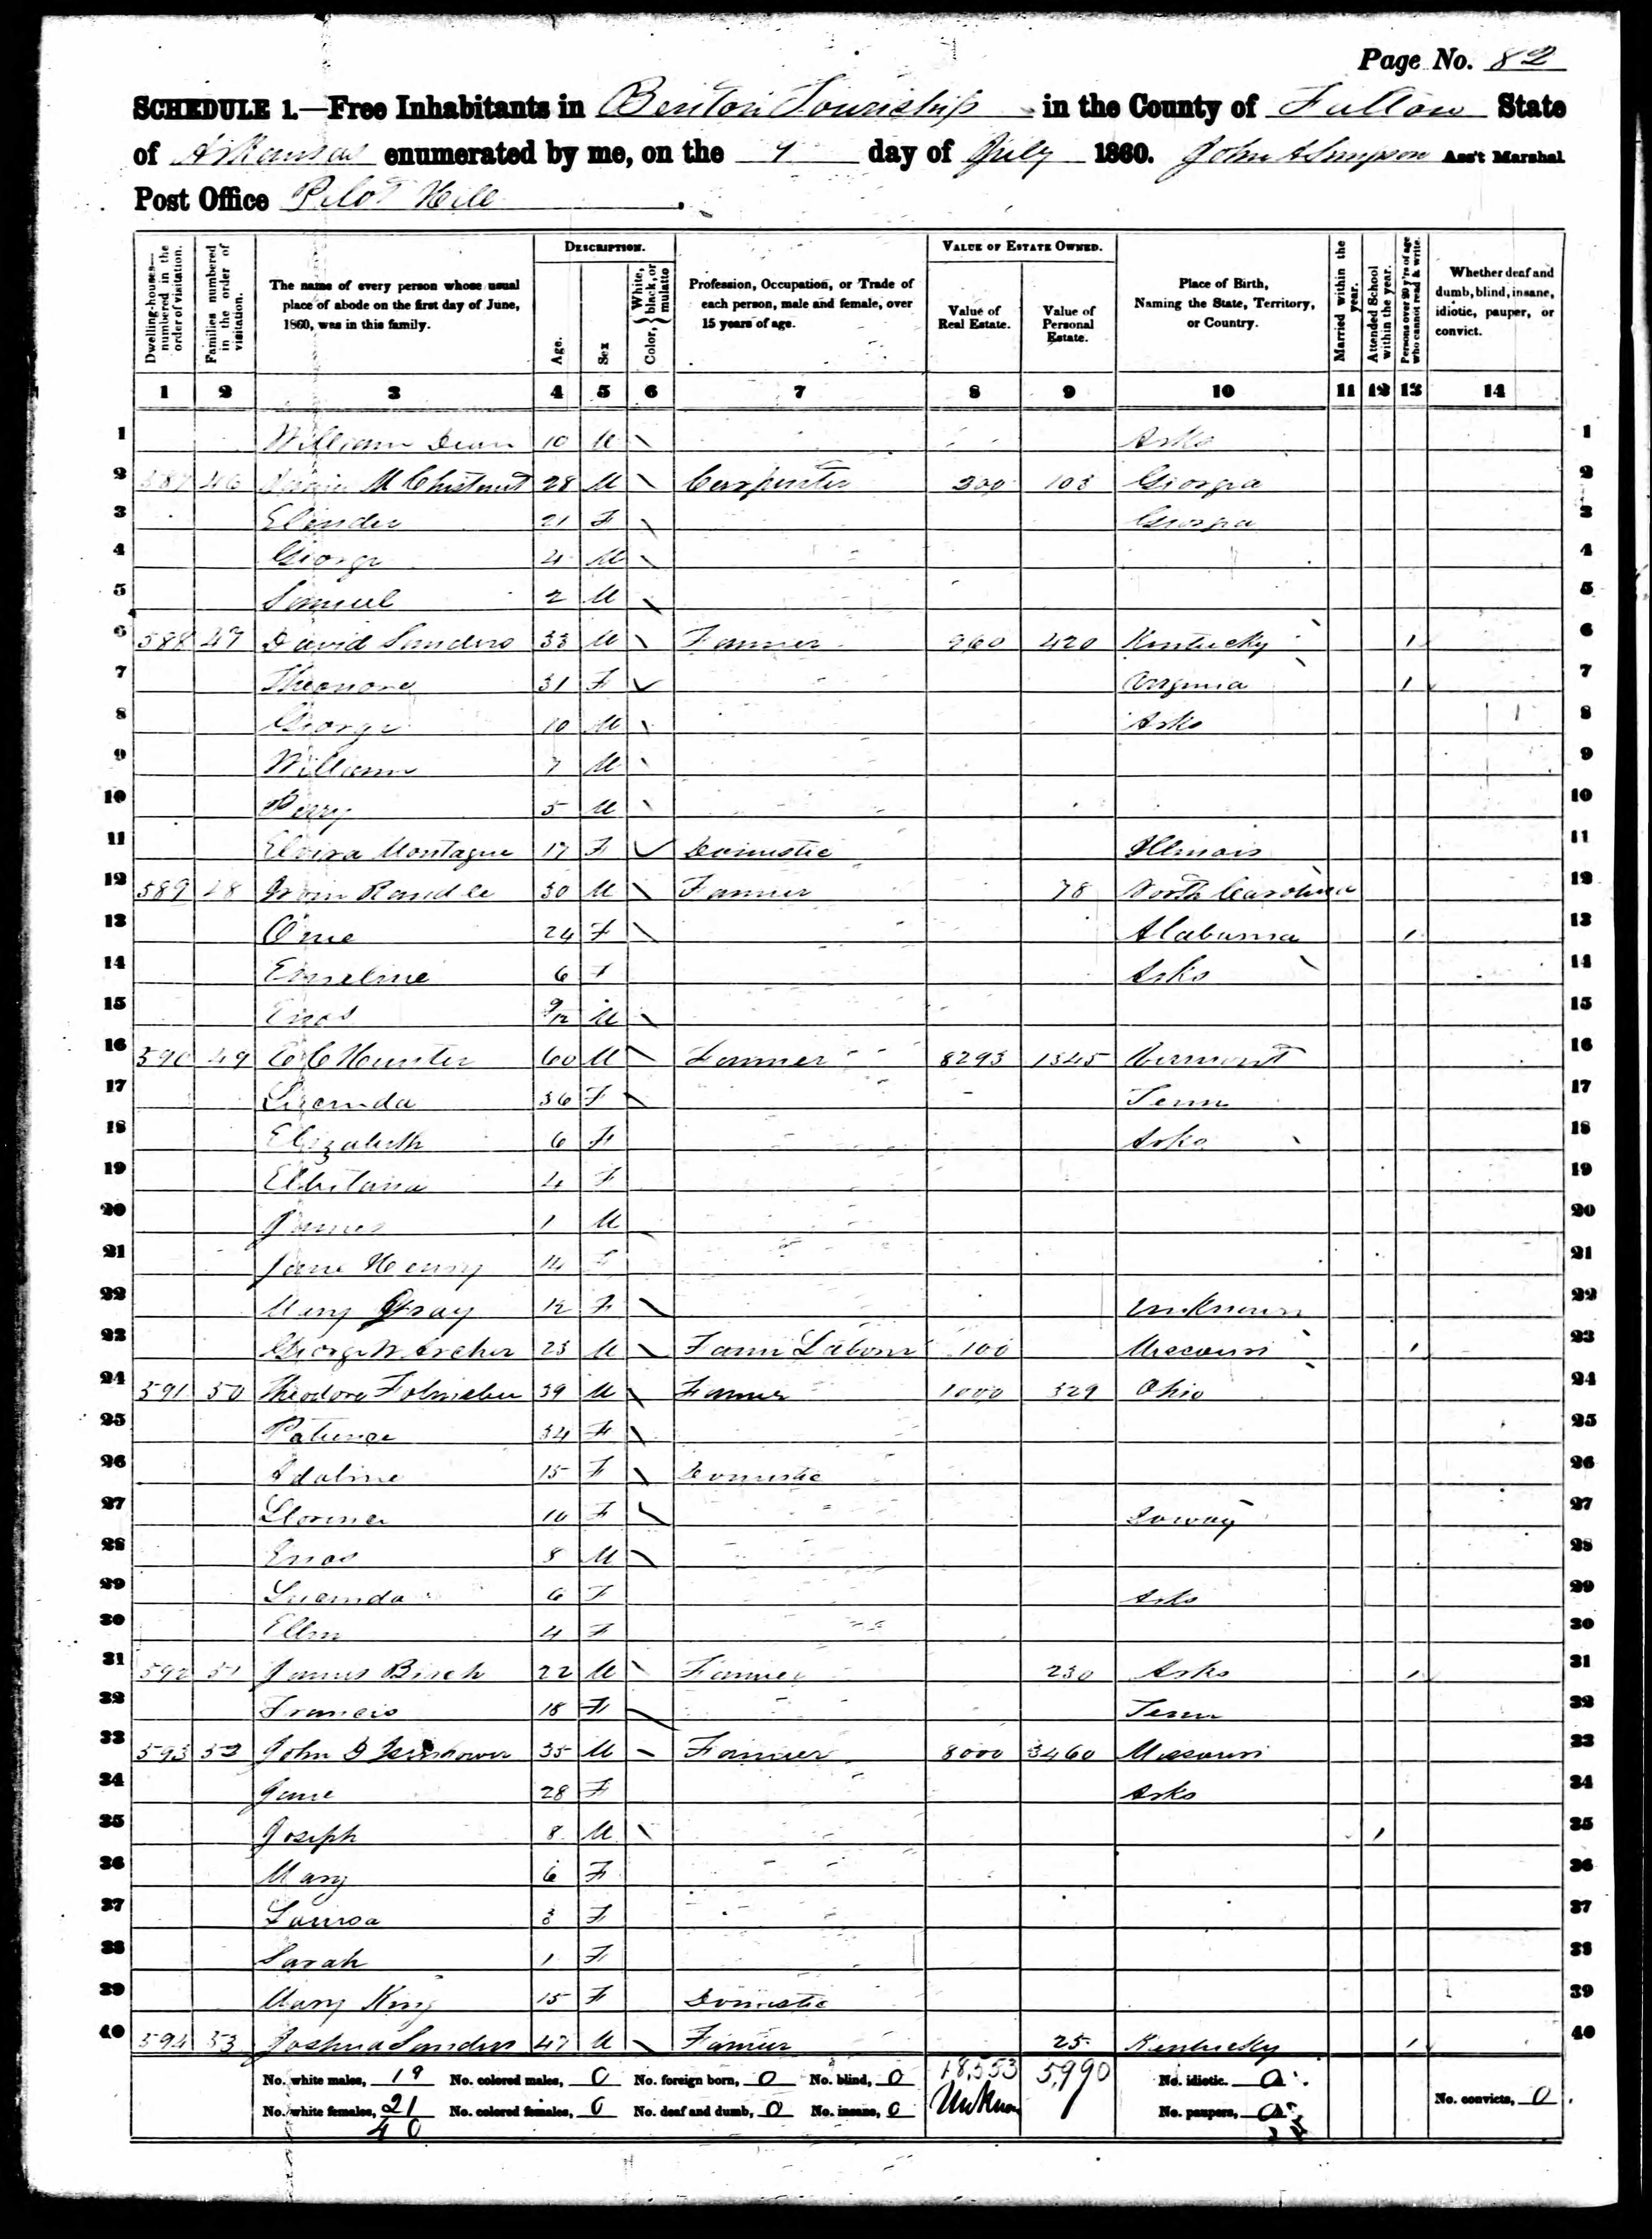 Page No. 82
SCHEDULE 1.—Free Inhabitants in Benton Township in the County of Fulton State
of Arkansas enumerated by me, on the 9 day of July 1860. John A Simpson Ass't Marshal
Post Office Pilot Hill.
Dwelling-houses—numbered in the order of visitation.
Families numbered in the order of visitation.
The name of every person whose usual place of abode on the first day of June, 1860, was in this family.
DESCRIPTION.
Age.
Sex
Color, White, black, or mulatto
Profession, Occupation, or Trade of each person, male and female, over 15 years of age.
VALUE OF ESTATE OWNED.
Value of Real Estate.
Value of Personal Estate.
Place of Birth, Naming the State, Territory, or Country.
Married within the year.
Attended School within the year.
Persons over 20 y'rs of age who cannot read & write.
Whether deaf and dumb, blind, insane, idiotic, pauper, or convict.
1 2 3 4 5 6 7 8 9 10 11 12 13 14
1 William Dean 10 M \ Arks 1
2 587 46 M Chestnut 28 M \ Carpenter 300 103 Georgia 2
3 Elender 21 F \ Georgia 3
4 George 4 M \ 4
5 Samuel 2 M \ 5
6 588 47 David Sanders 33 M \ Farmer 960 420 Kentucky 1 6
7 Theonora 31 F \ Virginia 1 7
8 George 10 M \ Arks 8
9 William 7 M \ 9
10 Perry 5 M \ 10
11 Elvira Montague 17 F \ Domestic Illinois 11
12 589 48 Irvin Randle 30 M \ Farmer 78 North Carolina 12
13 Ome 24 F \ Alabama 1 13
14 Emeline 6 F Arks 14
15 Enos 9/12 M \ 15
16 590 49 C C Hunter 60 M \ Farmer 8293 1345 Vermont 16
17 Lucinda 36 F \ Tenn 17
18 Elizabeth 6 F Arks 18
19 4 F 19
20 James 1 M 20
21 Jane Henry 14 F 21
22 Mary Gray 12 F \ Unknown 22
23 George W Archer 23 M \ Farm Laborer 100 Missouri 1 23
24 591 50 Theodore 39 M \ Farmer 1000 329 Ohio 24
25 Patience 34 F \ 25
26 Adaline 15 F \ Domestic 26
27 10 F \ Ioway 27
28 Enos 8 M \ 28
29 Lucinda 6 F Arks 29
30 Ellen 4 F 30
31 592 51 James Birch 22 M \ Farmer 230 Arks 1 31
32 Francis 18 F \ Tenn 32
33 593 52 John 35 M \ Farmer 8000 3460 Missouri 33
34 Jane 28 F Arks 34
35 Joseph 8 M \ 1 35
36 Mary 6 F 36
37 Louisa 3 F 37
38 Sarah 1 F 38
39 Mary King 15 F Domestic 39
40 594 53 Joshua Sanders 47 M \ Farmer 25 Kentucky 1 40
No. white males, 19 No. colored males, 0 No. foreign born, 0 No. blind, 0 18,553 5,990 No. idiotic. 0
No. white females, 21 No. colored females, 0 No. deaf and dumb, 0 No. insane, 0 No. paupers, 0 No. convicts, 0
40